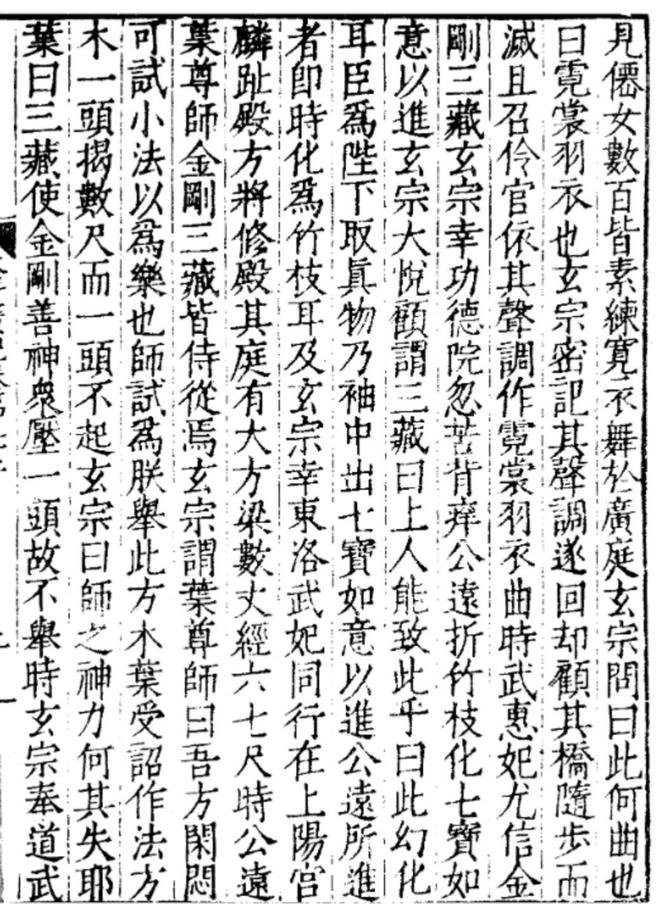 見僊女數百皆素練寬衣舞於廣庭玄宗問曰此何曲也
曰霓裳羽衣也玄宗密記其聲調遂回却顧其橋隨步而
滅且召伶官依其聲調作霓裳羽衣曲時武惠妃尤信金
剛三藏玄宗幸功德院忽苦背痒公遠折竹枝化七寶如
意以進玄宗大悅顧謂三藏曰上人能致此乎曰此幻化
耳臣爲陛下取眞物乃袖中出七寶如意以進公遠所進
者卽時化爲竹枝耳及玄宗幸東洛武妃同行在上陽宮
麟趾殿方將修殿其庭有大方梁數丈經六七尺時公遠
葉尊師金剛三藏皆侍從焉玄宗謂葉尊師曰吾方閑悶
可試小法以爲樂也師試爲朕舉此方木葉受詔作法方
木一頭揭數尺而一頭不起玄宗曰師之神力何其失耶
葉曰三藏使金剛善神衆壓一頭故不舉時玄宗奉道武